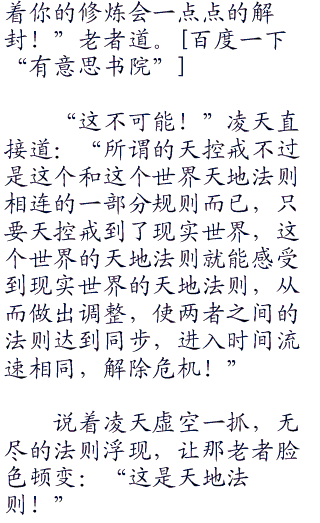 着你的修炼会一点点的解
封！”老者道。[百度一下
“有意思书院”]
“这不可能！”凌天直
接道：“所谓的天控戒不过
是这个和这个世界天地法则
相连的一部分规则而已，只
要天控戒到了现实世界，这
个世界的天地法则就能感受
到现实世界的天地法则，从
而做出调整，使两者之间的
法则达到同步，进入时间流
速相同，解除危机！”
说着凌天虚空一抓，无
尽的法则浮现，让那老者脸
色顿变：“这是天地法
则！”